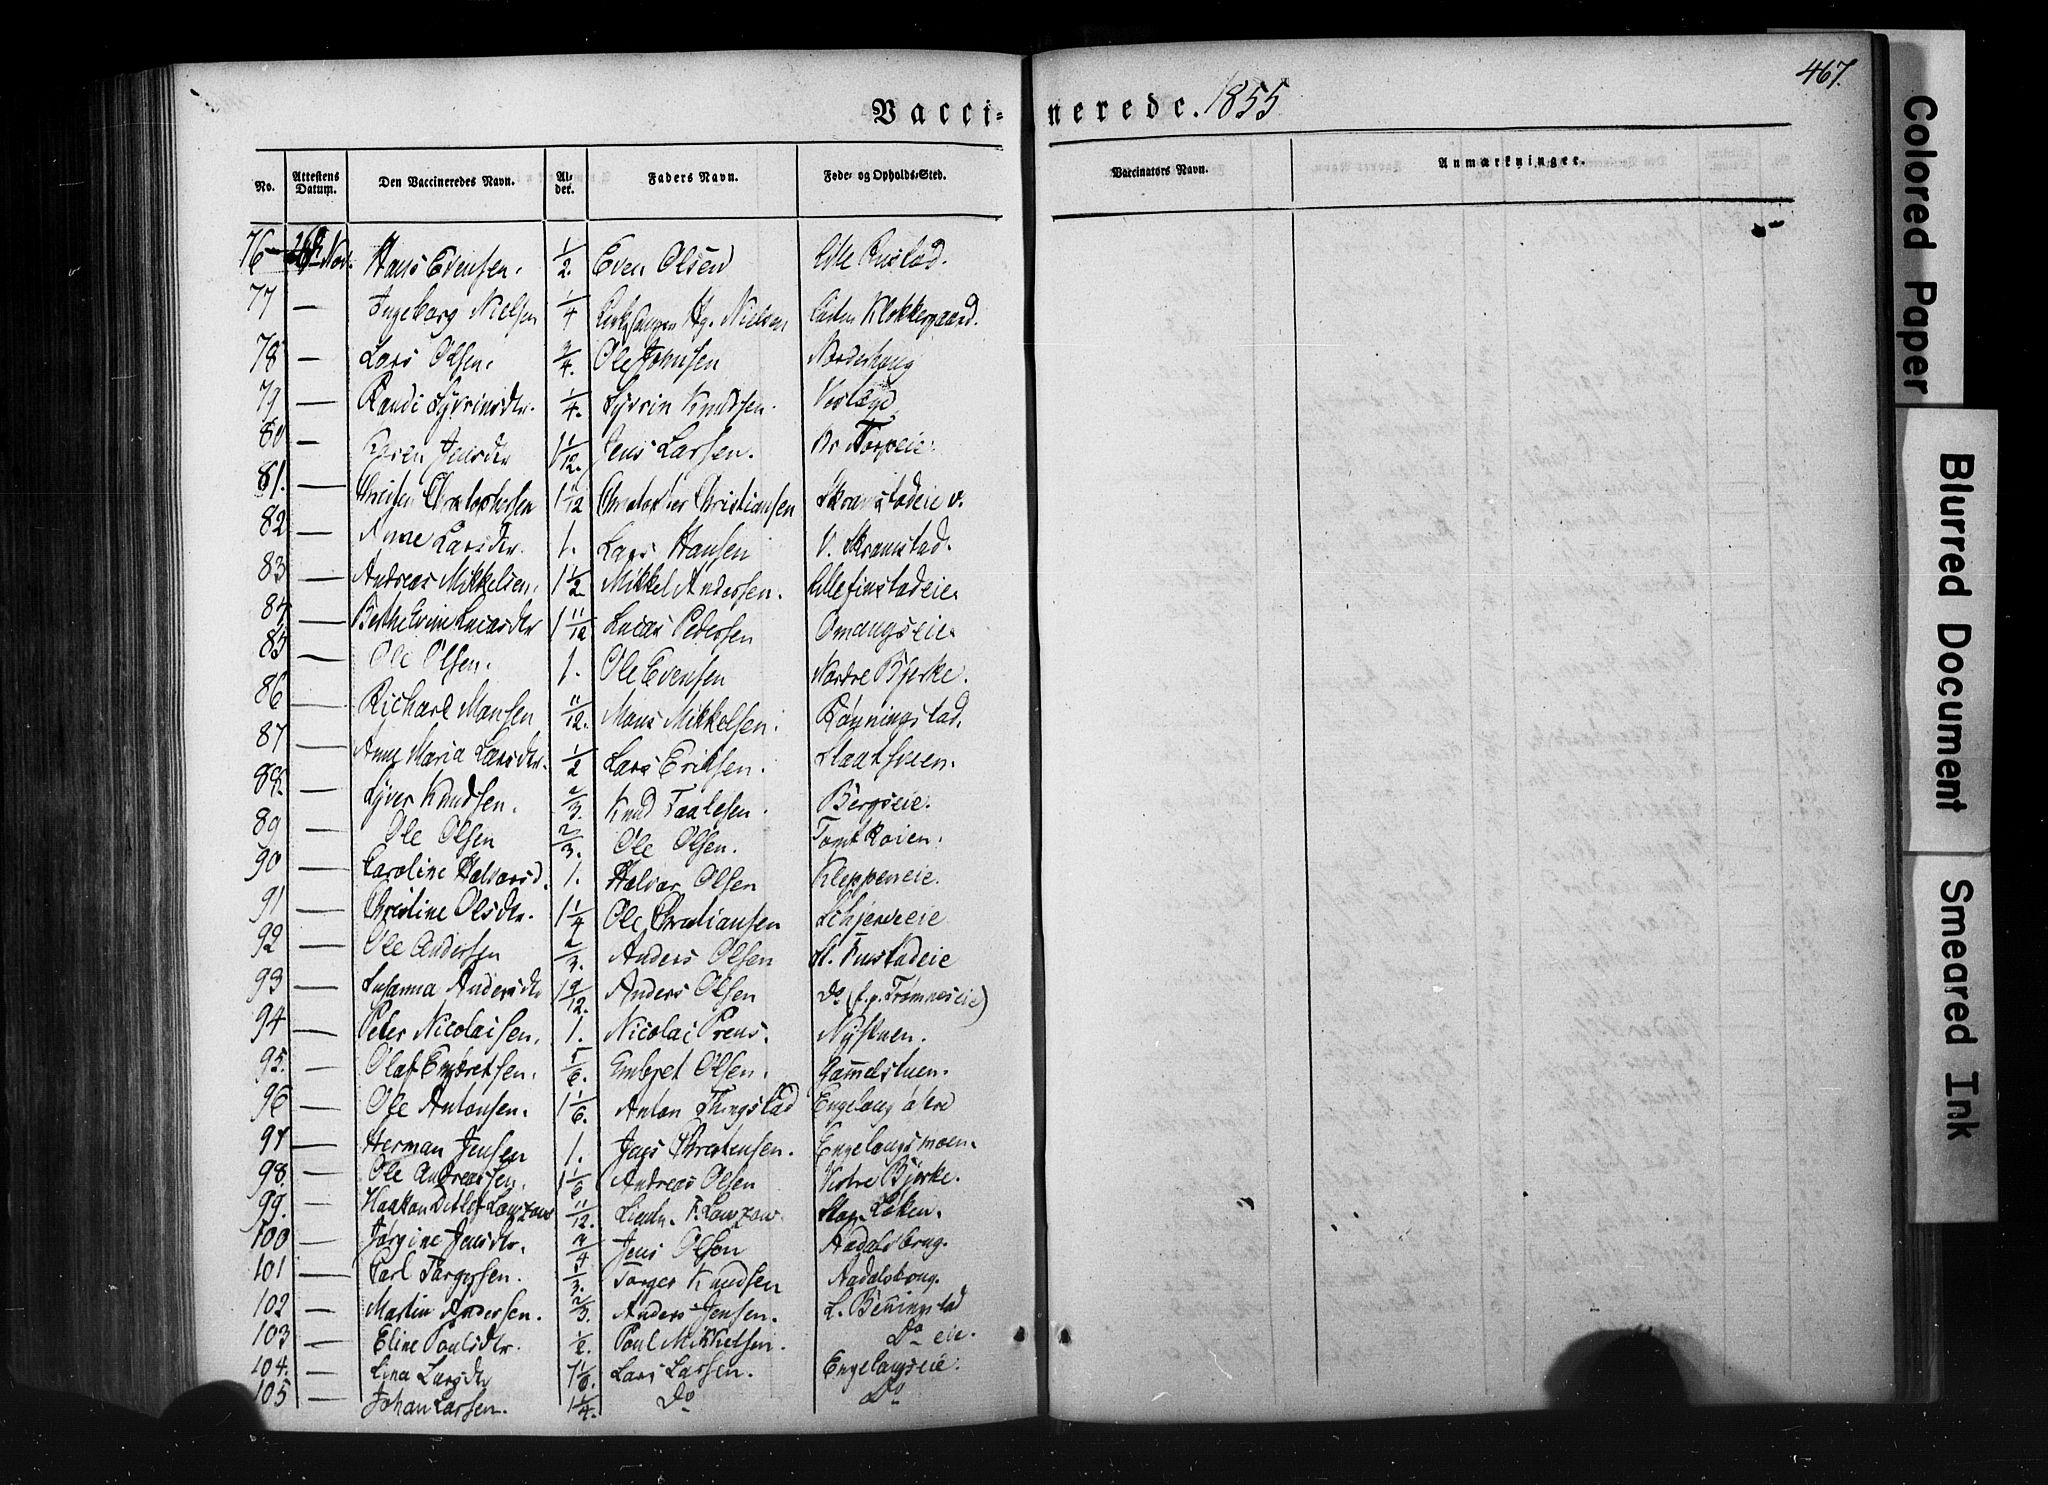 467.
Vacci-nerede. 1855
No. Attestens Datum. Den Vaccineredes Navn. Al-der. Faders Navn. Føde- og Opholds-Sted. Vaccinators Navn. Anmærkninger.
76 Nov. Hans Evensen. 1/2. Even Olsen Lille Rustad.
77 — Ingeborg Nielsen 1/4 Nielsen Klokkergaard.
78 — Lars Olsen. 3/4. Ole Johnsen Norderhoug
79 — Randi Syverinsdtr. 1/4. Syverin Knudsen.
80 — Karen Jensdtr 1 1/12. Jens Larsen. Torpeie.
81. — Christofersen Christofer Christiansen Skramstadeie v.
82 — Anne Larsdtr. 1. Lars Hansen V. Skramstad.
83 — Andreas Mikkelsen. 1 1/2 Mikkel Andersen. Lillefinstadeie.
84 — Berthe Lucasdtr 1 11/12 Lucas Pedersen Omangseie.
85 — Ole Olsen. 1. Ole Evensen Nordre Bjerke.
86 — Richard Monsen 11/12. Mons Mikkelsen. Rønningstad.
87 — Anne Maria Larsdtr. 1/2 Lars Eriksen.
88. — Syver Knudsen. 2/3. Knud Taalesen. Bergseie.
89 — Ole Olsen 2/3. Ole Olsen.
90 — Caroline Halvorsd. 1. Halvor Olsen Kleppeneie.
91 — Christine Olsdtr. 1 1/4 Ole Christiansen
92 — Ole Andersen 2/3. Anders Olsen
93 — Susanna Andersdtr 1 9/12. Anders Olsen Do
94 — Peter Nicolaisen. 1. Nicolai Prens. Nystuen.
95. — Olaf Embretsen. 5/6. Embret Olsen. Gammelstuen.
96 — Ole Antonsen. 1 1/6. Anton Thingstad Engelaug østre
97 — Herman Jensen 1. Jens Christensen. Engelaugsmoen.
98. — Ole Andreassen. 1 1/6 Andreas Olsen Vestre Bjerke.
99. — Haakon Ditlef Lowzow 11/12. Lowzow. Løken.
100 — Jørgine Jensdtr. 3/4 Jens Olsen Aadalsbrug.
101 — Carl Torgersen. Torger Knudsen Aadalsbrug.
102 — Martin Andersen. 2/3. Anders Jensen. L. Benningstad
103 — Eline Poulsdtr. Poul Mikkelsen. Do eie.
104. — Lina Larsdtr Lars Larsen. Engelaugseie.
105 — Johan Larsen. 1 1/4. Do Do
Colored Paper
Blurred Document
Smeared Ink